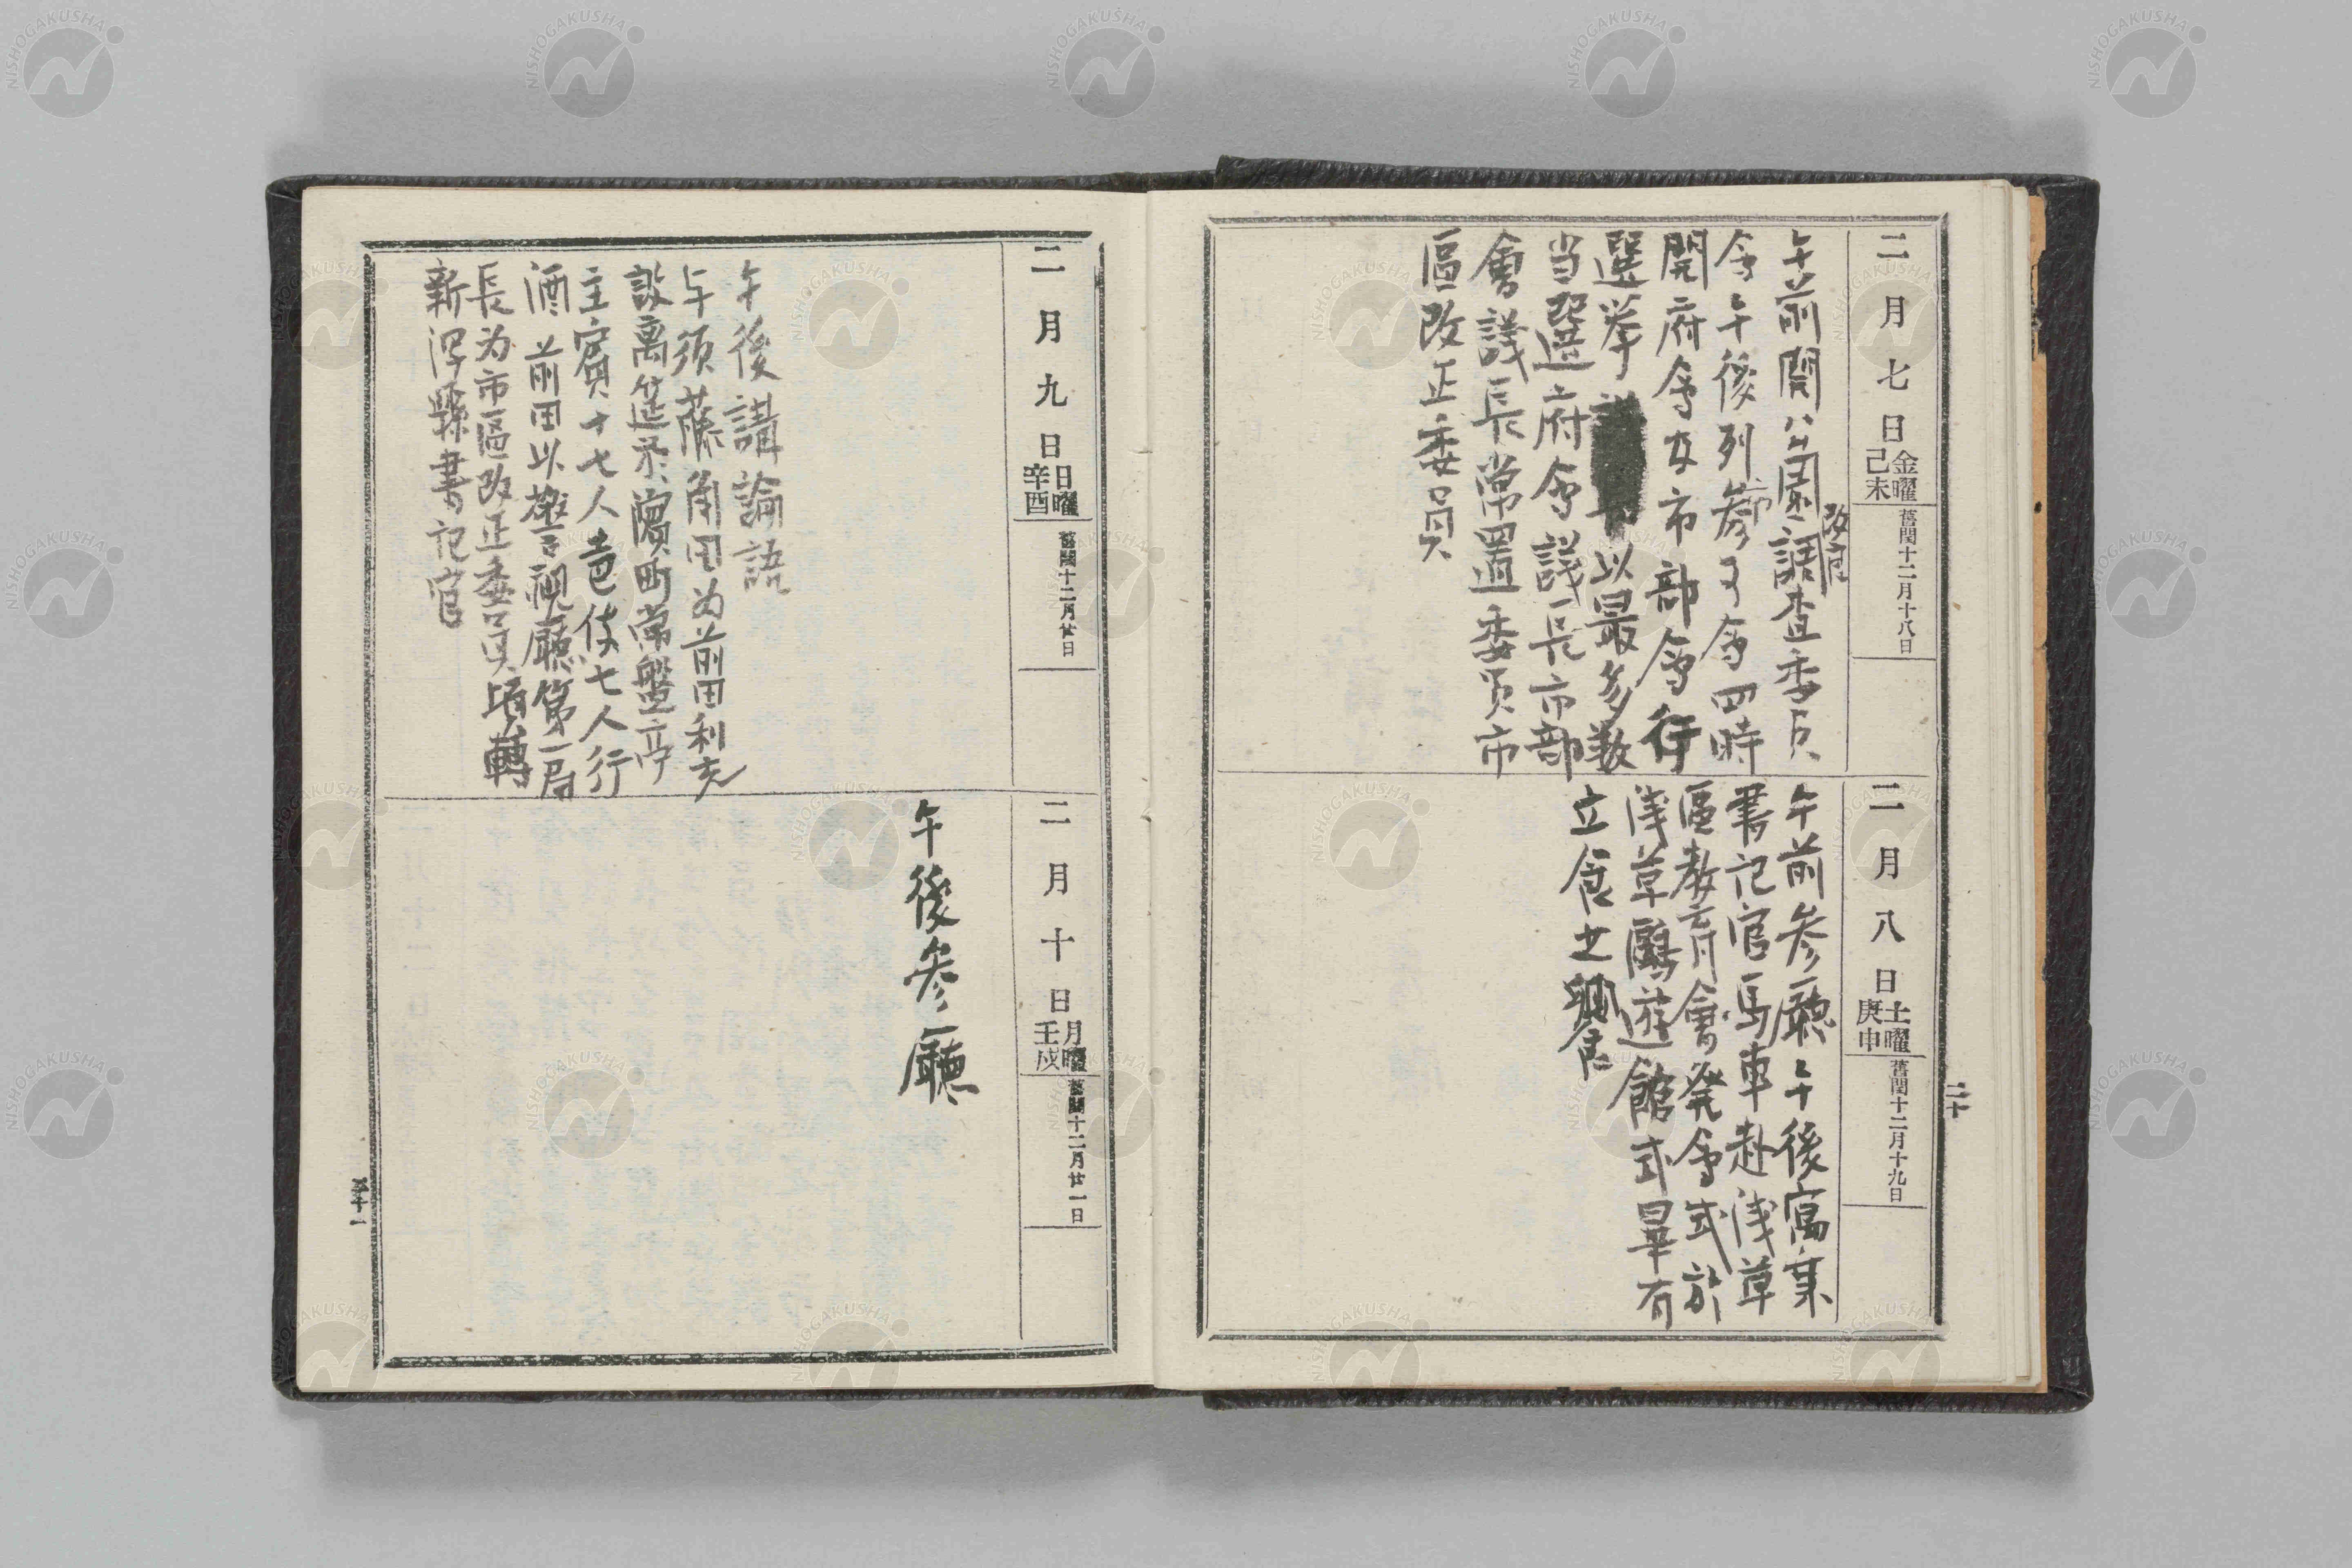 二月七日
金曜
己未
舊閏十二月十八日
午前開公園調査委員
改正
会午後列参事会四時
開府会女市部会行
選挙
以最多数
当選府会議長市部
會議長常置委員市
區改正委員
二月八日
土曜
庚申
舊閏十二月十九日
午前参廳午後富峯
書記官馬車赴浅草
區教育會発会式於
浅草鷗遊館式畢有
立食之
二十
二月九日
日曜
辛酉
舊閏十二月廿日
午後講論語
午須藤角田為前田利充
設离筵於濱町常盤亭
主賓十七人侑七人行
酒前田以警視廳第一局
長为市區改正委員頃轉
新潟縣書記官
二月十日
月曜
壬戌
舊閏十二月廿一日
午後参廳